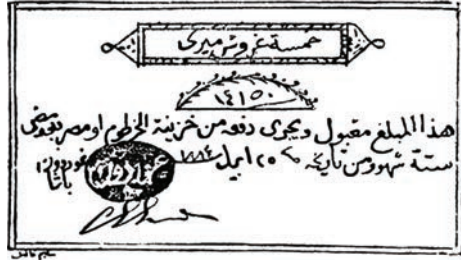 خمسة غروش ميرى
١٤١٥٠
هذا المبلغ مقبول ويجرى دفعه من خزينة الخرطوم او مصر بعد مضى
ستة شهور من تاريخه ٢٥ ابريل ١٨٨٤
باشا